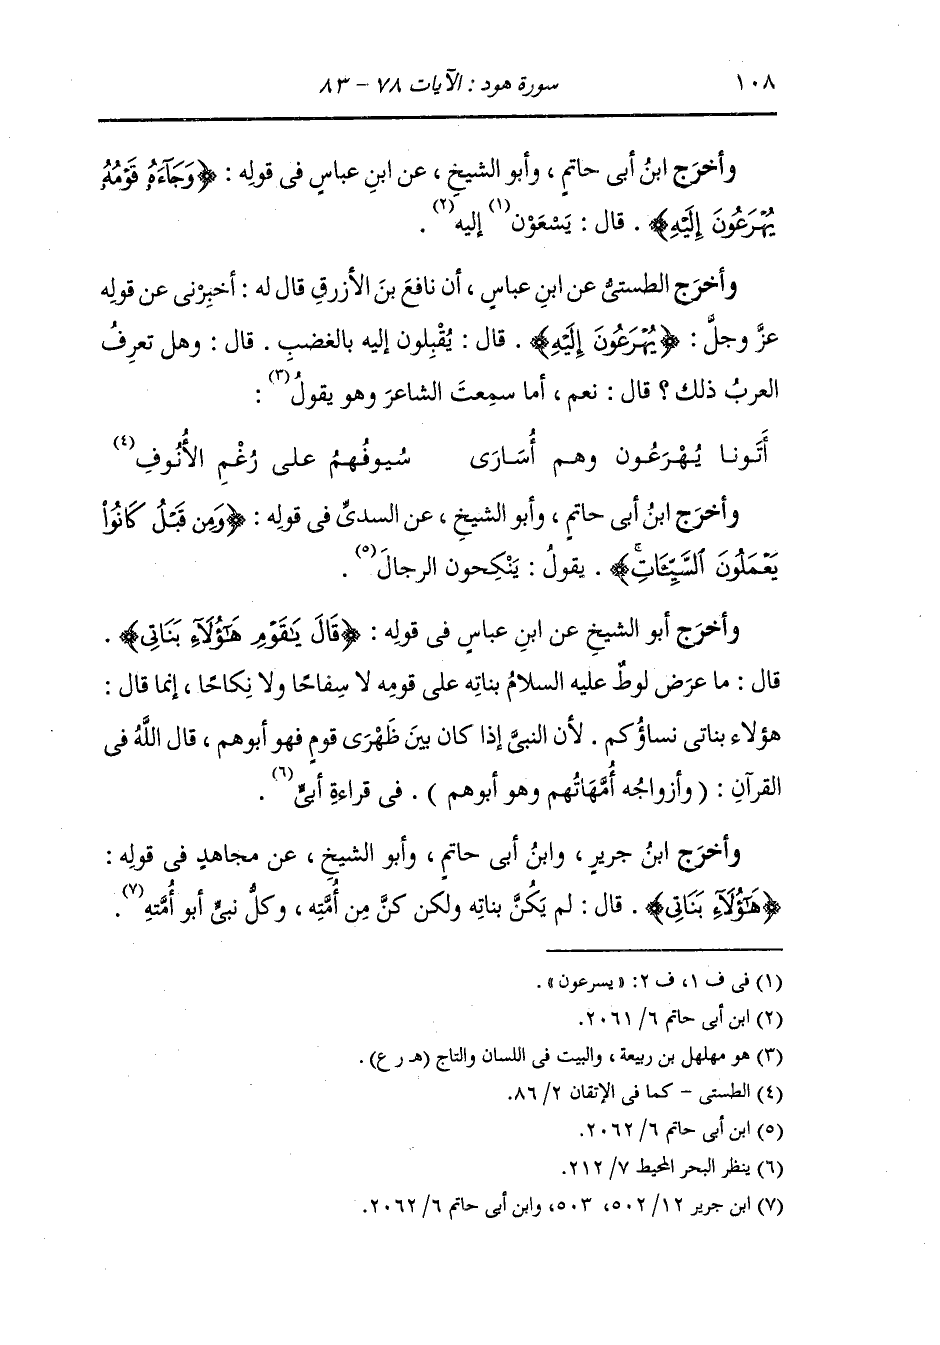 ١٠٨ سورة هود : الآيات ٧٨ - ٨٣
وأخرَج ابنُ أبى حاتمٍ ، وأبو الشيخِ ، عن ابنِ عباسٍ فى قولِه : ﴿وَجَآءَهُۥ قَوْمُهُۥ
يُهْرَعُونَ إِلَيْهِ﴾ . قال : يَسْعَوْن(١) إليه(٢) .
وأخرَج الطستىُّ عن ابنِ عباسٍ ، أن نافعَ بنَ الأزرقِ قال له : أخبِرْنى عن قولِه
عزَّ وجلَّ : ﴿يُهْرَعُونَ إِلَيْهِ﴾ . قال : يُقْبِلون إليه بالغضبِ . قال : وهل تعرِفُ
العربُ ذلك ؟ قال : نعم ، أما سمِعتَ الشاعرَ وهو يقولُ(٣) :
أَتَونا يُهْرَعُون وهم أُسَارَى سُيوفُهمُ على رُغْمِ الأُنُوفِ(٤)
وأخرَج ابنُ أبى حاتمٍ ، وأبو الشيخِ ، عن السدىِّ فى قولِه : ﴿وَمِن قَبْلُ كَانُوا۟
يَعْمَلُونَ ٱلسَّيِّـَٔاتِۚ﴾ . يقولُ : يَنْكِحون الرجالَ(٥) .
وأخرَج أبو الشيخِ عن ابنِ عباسٍ فى قولِه : ﴿قَالَ يَٰقَوْمِ هَٰٓؤُلَآءِ بَنَاتِى﴾ .
قال : ما عرَض لوطٌ عليه السلامُ بناتِه على قومِه لا سِفاحًا ولا نِكاحًا ، إنما قال :
هؤلاء بناتى نساؤُكم . لأن النبىَّ إذا كان بينَ ظَهْرَى قومٍ فهو أبوهم ، قال اللَّهُ فى
القرآنِ : ( وأزواجُه أُمَّهَاتُهم وهو أبوهم ) . فى قراءةِ أبىٍّ(٦) .
وأخرَج ابنُ جريرٍ ، وابنُ أبى حاتمٍ ، وأبو الشيخِ ، عن مجاهدٍ فى قولِه :
﴿هَٰٓؤُلَآءِ بَنَاتِى﴾ . قال : لم يَكُنَّ بناتِه ولكن كنَّ مِن أُمَّتِه ، وكلُّ نبىٍّ أبو أُمَّتِه(٧) .
(١) فى ف ١، ف ٢: « يسرعون » .
(٢) ابن أبى حاتم ٦/ ٢٠٦١.
(٣) هو مهلهل بن ربيعة ، والبيت فى اللسان والتاج (هـ ر ع) .
(٤) الطستى - كما فى الإتقان ٢/ ٨٦.
(٥) ابن أبى حاتم ٦/ ٢٠٦٢.
(٦) ينظر البحر المحيط ٧/ ٢١٢.
(٧) ابن جرير ١٢/ ٥٠٢، ٥٠٣، وابن أبى حاتم ٦/ ٢٠٦٢.